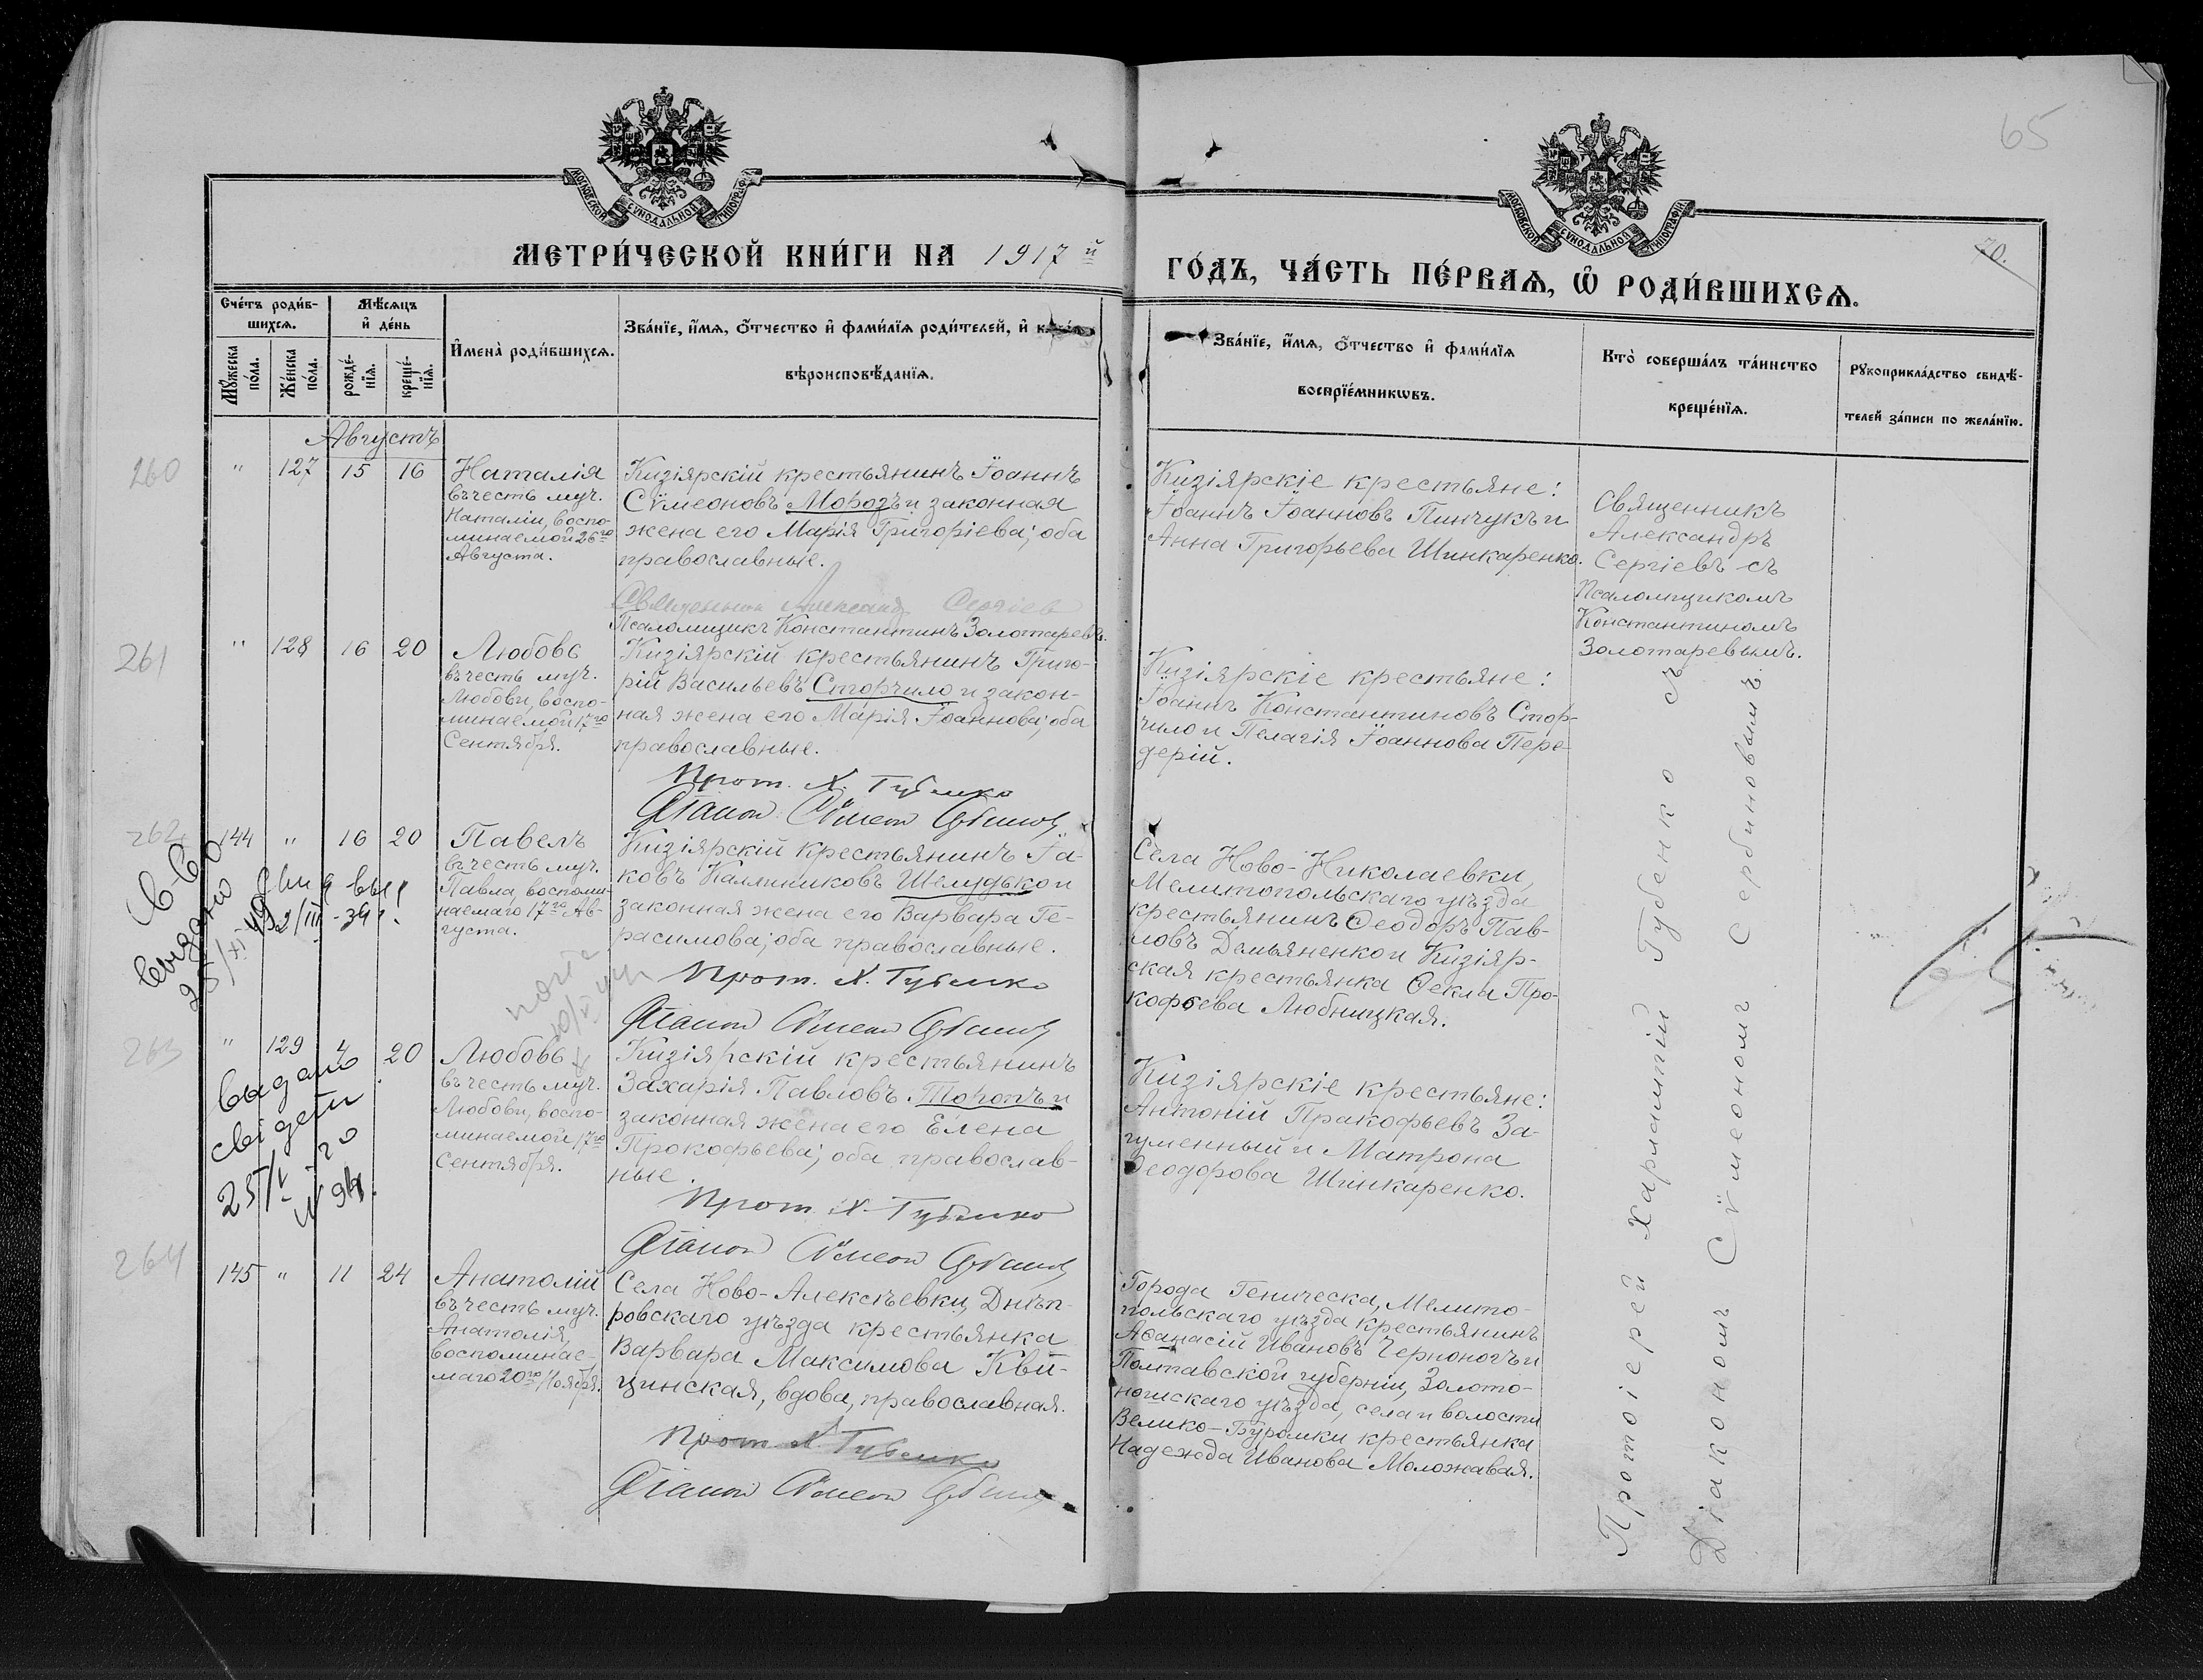 65
МОСКОВСКОЙ СѴНОДАЛЬНОЙ ТИПОГРАФІИ
МОСКОВСКОЙ СѴНОДАЛЬНОЙ ТИПОГРАФІИ
МЕТРИ́ЧЕСКОЙ КНИ́ГИ НА 1917й
ГО́ДЪ, ЧА́СТЬ ПЕ́РВАѦ, Ѡ҆ РОДИ́ВШИХСѦ.
70.
Сче́тъ роди́в-
шихсѧ.
Мꙋ́жеска
по́ла.
Же́нска
по́ла.
Мѣ́сѧцъ
и҆ де́нь
рожде́-
нїѧ.
креще́-
нїѧ.
И҆мена̀ роди́вшихсѧ.
Зва́нїе, и҆́мѧ, ѻ҆́тчество и҆ фами́лїѧ роди́телей, и҆
вѣроисповѣ́данїѧ.
Зва́нїе, и҆́мѧ, ѻ҆́тчество и҆ фами́лїѧ
воспрїе́мникѡвъ.
Кто̀ соверша́лъ та́инство
креще́нїѧ.
Рꙋкоприкла́дство свидѣ́-
телей за́писи по жела́нїю.
Августъ
260
" 127 15 16
Наталія
въ честь муч.
Наталіи, воспо-
минаемой 26го
Августа.
Кизіярскій крестьянинъ Іоаннъ
Сѵмеоновъ Морозъ и законная
жена его Марія Григоріева; оба
православные.
Священникъ Александръ Сергіевъ
Псаломщикъ Константинъ Золотаревъ.
Кизіярскіе крестьяне:
Іоаннъ Іоанновъ Пинчукъ и
Анна Григорьева Шинкаренко.
Священникъ
Александръ
Сергіевъ съ
Псаломщикомъ
Константиномъ
Золотаревымъ.
261
" 128 16 20
Любовь
въ честь муч.
Любови, воспо-
минаемой 17го
Сентября.
Кизіярскій крестьянинъ Григо-
рій Васильевъ Сторчило и закон-
ная жена его Марія Іоаннова; оба
православные.
Прот. Х. Губенко
Діаконъ Сѵмеонъ Сербиновъ
Кизіярскіе крестьяне:
Іоаннъ Константиновъ Стор-
чило и Пелагія Іоаннова Пере-
дерій.
Протоіерей Харлампій Губенко съ
Діакономъ Сѵмеономъ Сербиновымъ.
262
144 " 16 20
Павелъ
въ честь муч.
Павла, воспоми-
наемаго 17го Ав-
густа.
Кизіярскій крестьянинъ Іа-
ковъ Каллиниковъ Шелудько и
законная жена его Варвара Ге-
расимова; оба православные.
Прот. Х. Губенко
Діаконъ Сѵмеонъ Сербиновъ
Села Ново-Николаевки,
Мелитопольскаго уѣзда
крестьянинъ Ѳеодоръ Пав-
ловъ Демьяненко и Кизіяр-
ская крестьянка Ѳекла Про-
кофьева Любницкая.
видано
25/XI
263
" 129 4 20
видано
свідетн
25/V
N 94.
Любовь
въ честь муч.
Любови, воспо-
минаемой 17го
Сентября.
Кизіярскій крестьянинъ
Захарія Павловъ Торопъ и
законная жена его Елена
Прокофьева; оба православ-
ные.
Прот. Х. Губенко
Діаконъ Сѵмеонъ Сербиновъ
Кизіярскіе крестьяне:
Антоній Пракофьевъ За-
гуменный и Матрона
Ѳеодорова Шинкаренко.
264
145 " 11 24
Анатолій
въ честь муч.
Анатолія,
воспоминае-
маго 20го Ноября.
Села Ново-Алексѣевки, Днѣп-
ровскаго уѣзда крестьянка
Варвара Максимова Кви-
цинская, вдова, православная.
Прот. Х. Губенко
Діаконъ Сѵмеонъ Сербиновъ
Города Геническа, Мелито-
польскаго уѣзда крестьянинъ
Аѳанасій Ивановъ Черноногъ и
Полтавской губерніи, Золото-
ношскаго уѣзда, села и волости
Велико-Буромки крестьянка
Надежда Иванова Моложавая.